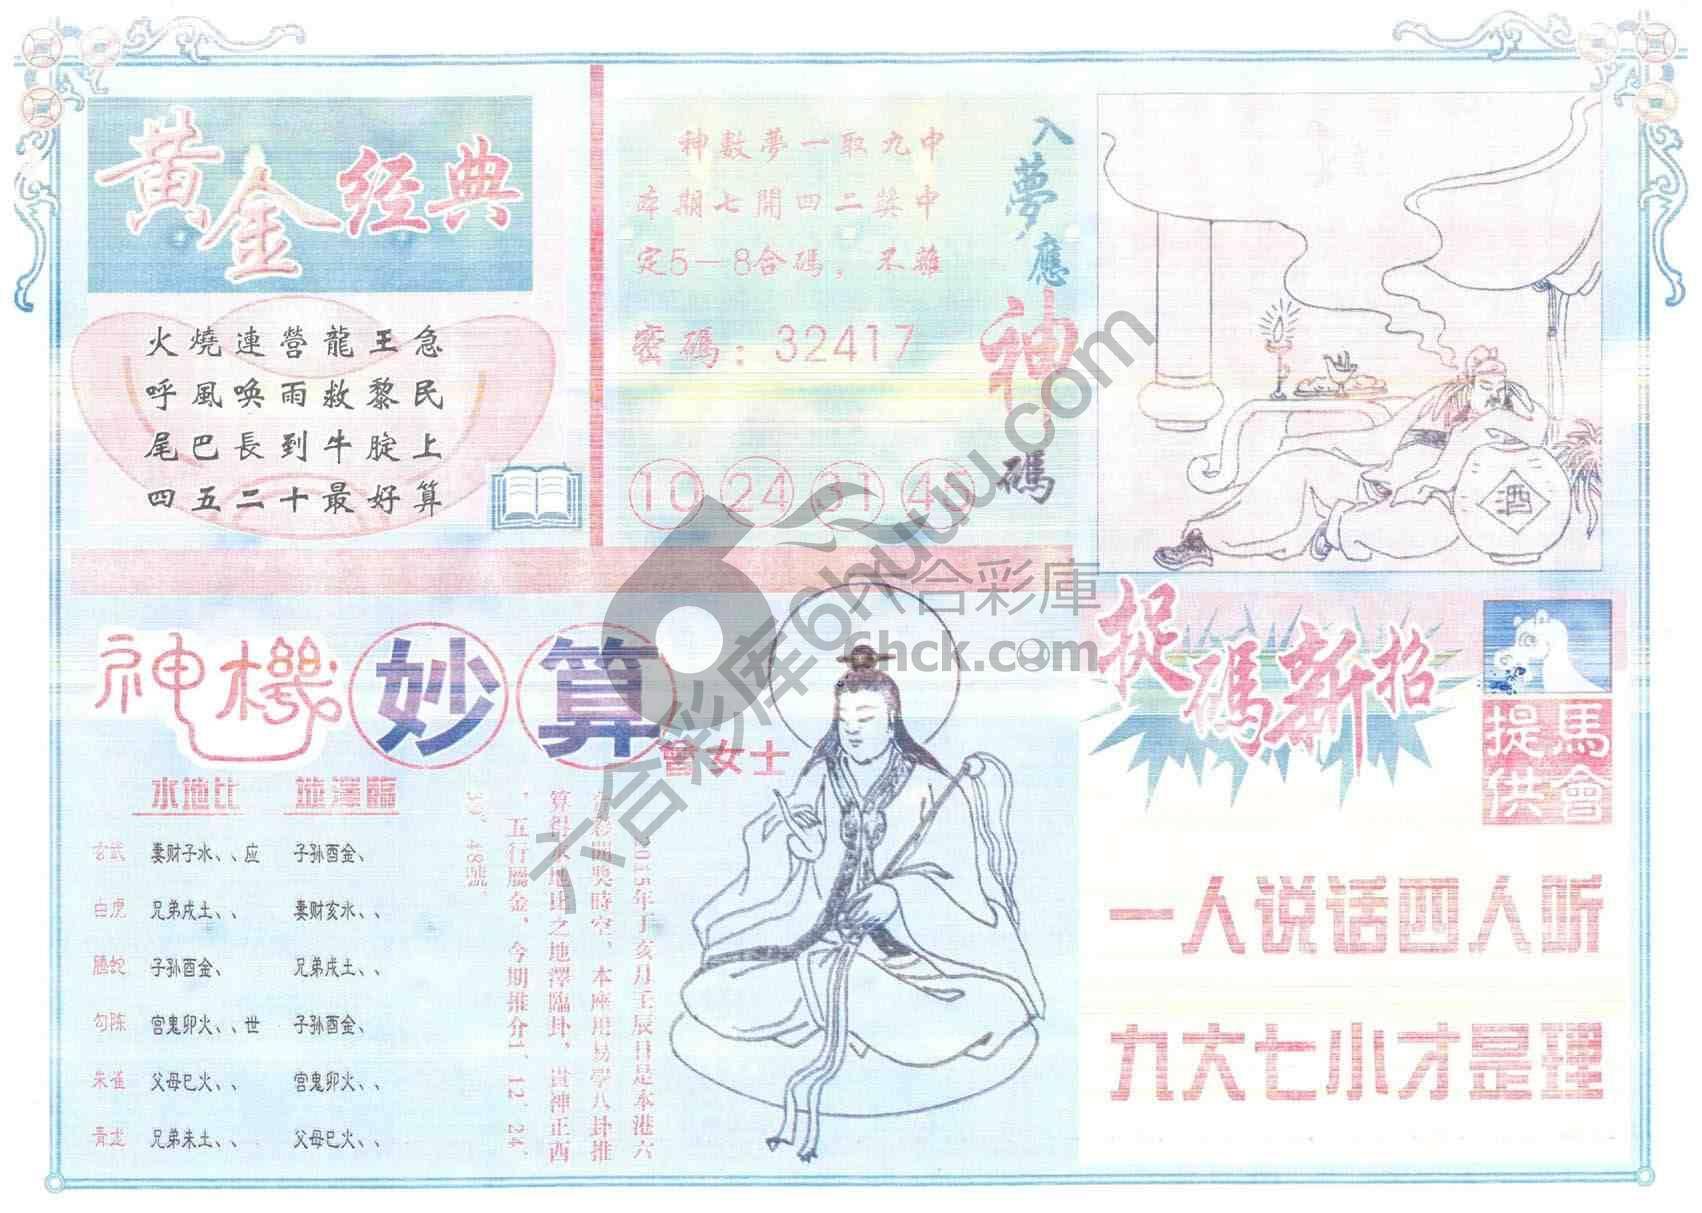 黄金经典
火燒連營龍王急
呼風喚雨救黎民
尾巴長到牛腚上
四五二十最好算
入夢應神碼
神數夢一取九中
本期七開四二獎中
定5—8合碼，不離
密碼：32417
10 24 31 45
酒
神機妙算
曾女士
水地比 地澤臨
玄武 妻财子水、、应 子孙酉金、
白虎 兄弟戌土、、 妻财亥水、、
螣蛇 子孙酉金、 兄弟戌土、、
勾陈 官鬼卯火、、世 子孙酉金、
朱雀 父母巳火、、 官鬼卯火、、
青龙 兄弟未土、、 父母巳火、、
015年丁亥月壬辰日是本港六
合彩開獎時空，本座用易學八卦推
算得水地比之地澤臨卦，貴神正西
，五行屬金，今期推介1、12、24、
48號、
捉碼新招
馬會提供
一人说话四人听
九大七小才是理
六合彩庫
6hck.com
六合彩库6huw.com